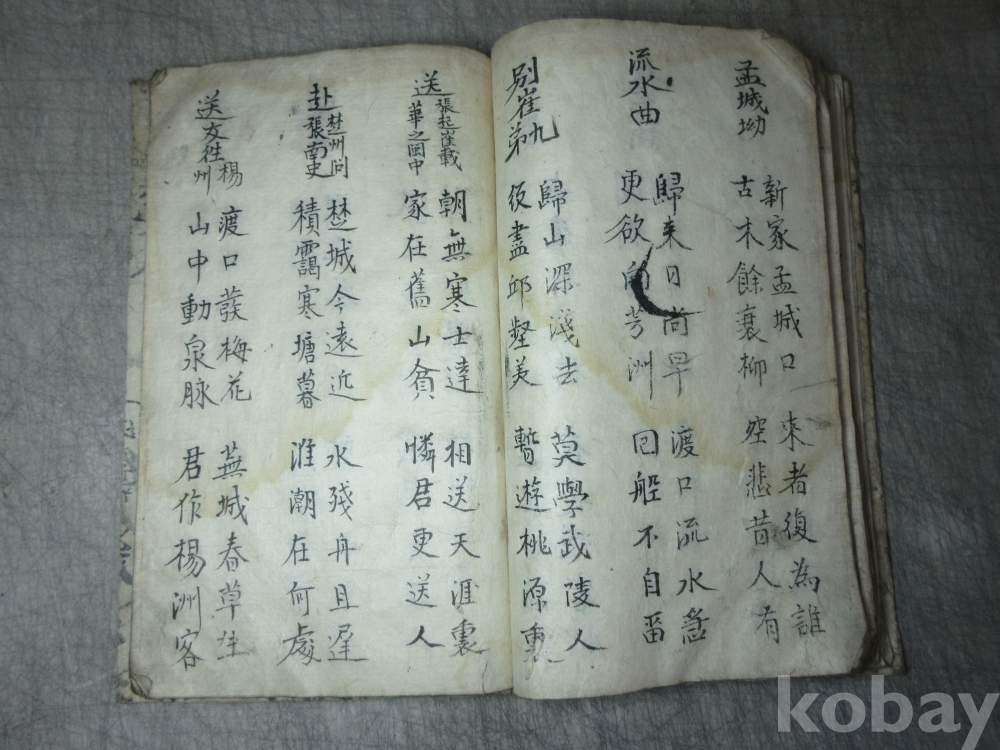 孟城坳
新家孟城口
古木餘衰柳
來者復為誰
空悲昔人有
流水曲
歸来日尚早
更欲向芳洲
渡口流水急
回船不自畱
別崔九弟
歸山深淺去
須盡邱壑美
莫學武陵人
暫遊桃源裏
送張起崔載華之閩中
朝無寒士達
家在舊山貧
相送天涯裏
憐君更送人
赴楚州問張南史
楚城今遠近
積靄寒塘暮
水殘舟且遲
淮潮在何處
送友徃楊州
渡口發梅花
山中動泉脉
蕪城春草生
君作楊洲客
kobay